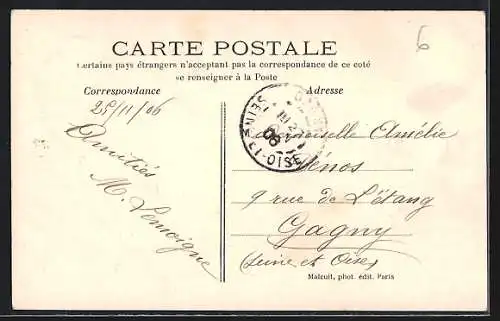 6
CARTE POSTALE
Certains pays étrangers n'acceptant pas la correspondance de ce coté
se renseigner à la Poste
Correspondance
Adresse
25/11/06
Amitiés
M. Lemoigne
Mademoiselle Amélie
9 rue de L'étang
Gagny
(Seine et Oise)
Malcuit, phot. édit. Paris